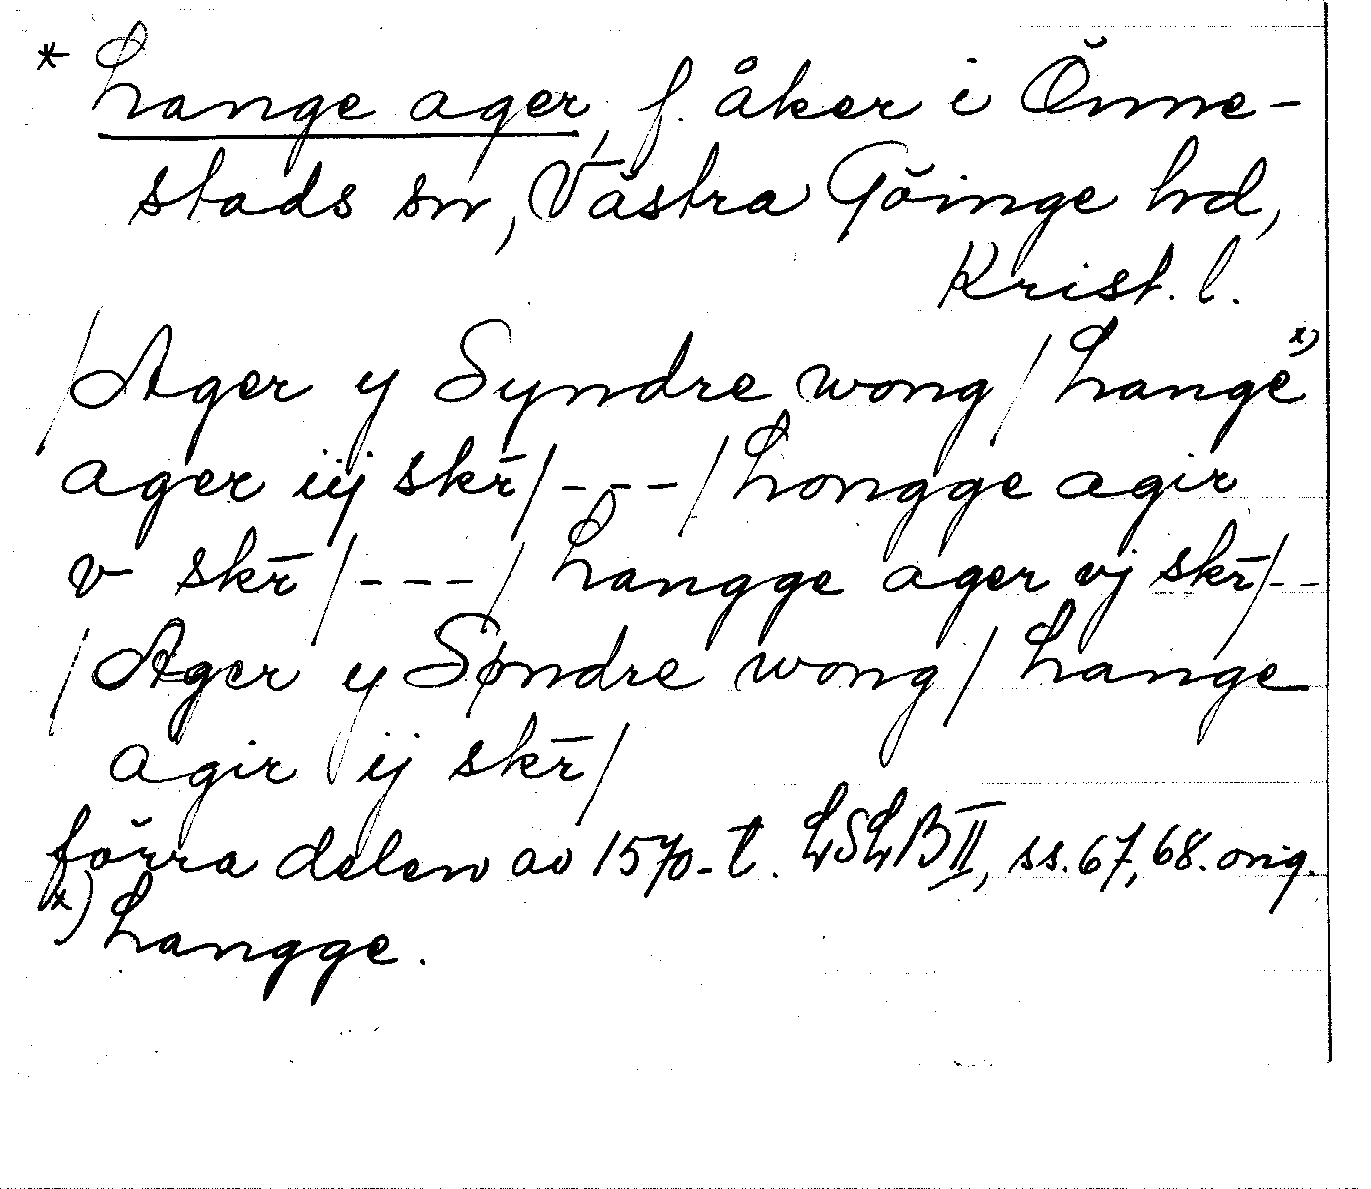 * Lange ager, f. åker i Önne-
stads sn, Västra Göinge hd,
Krist. l.
/Ager y Syndre wong/Lange x)
ager iij skr̄/---/Longge agir
v skr̄/---/Langge ager vj skr̄/--
/Ager y Søndre wong/Lange
agir ij skr̄/
förra delen av 1570-t. LSLB II, ss. 67, 68. orig.
x) Langge.